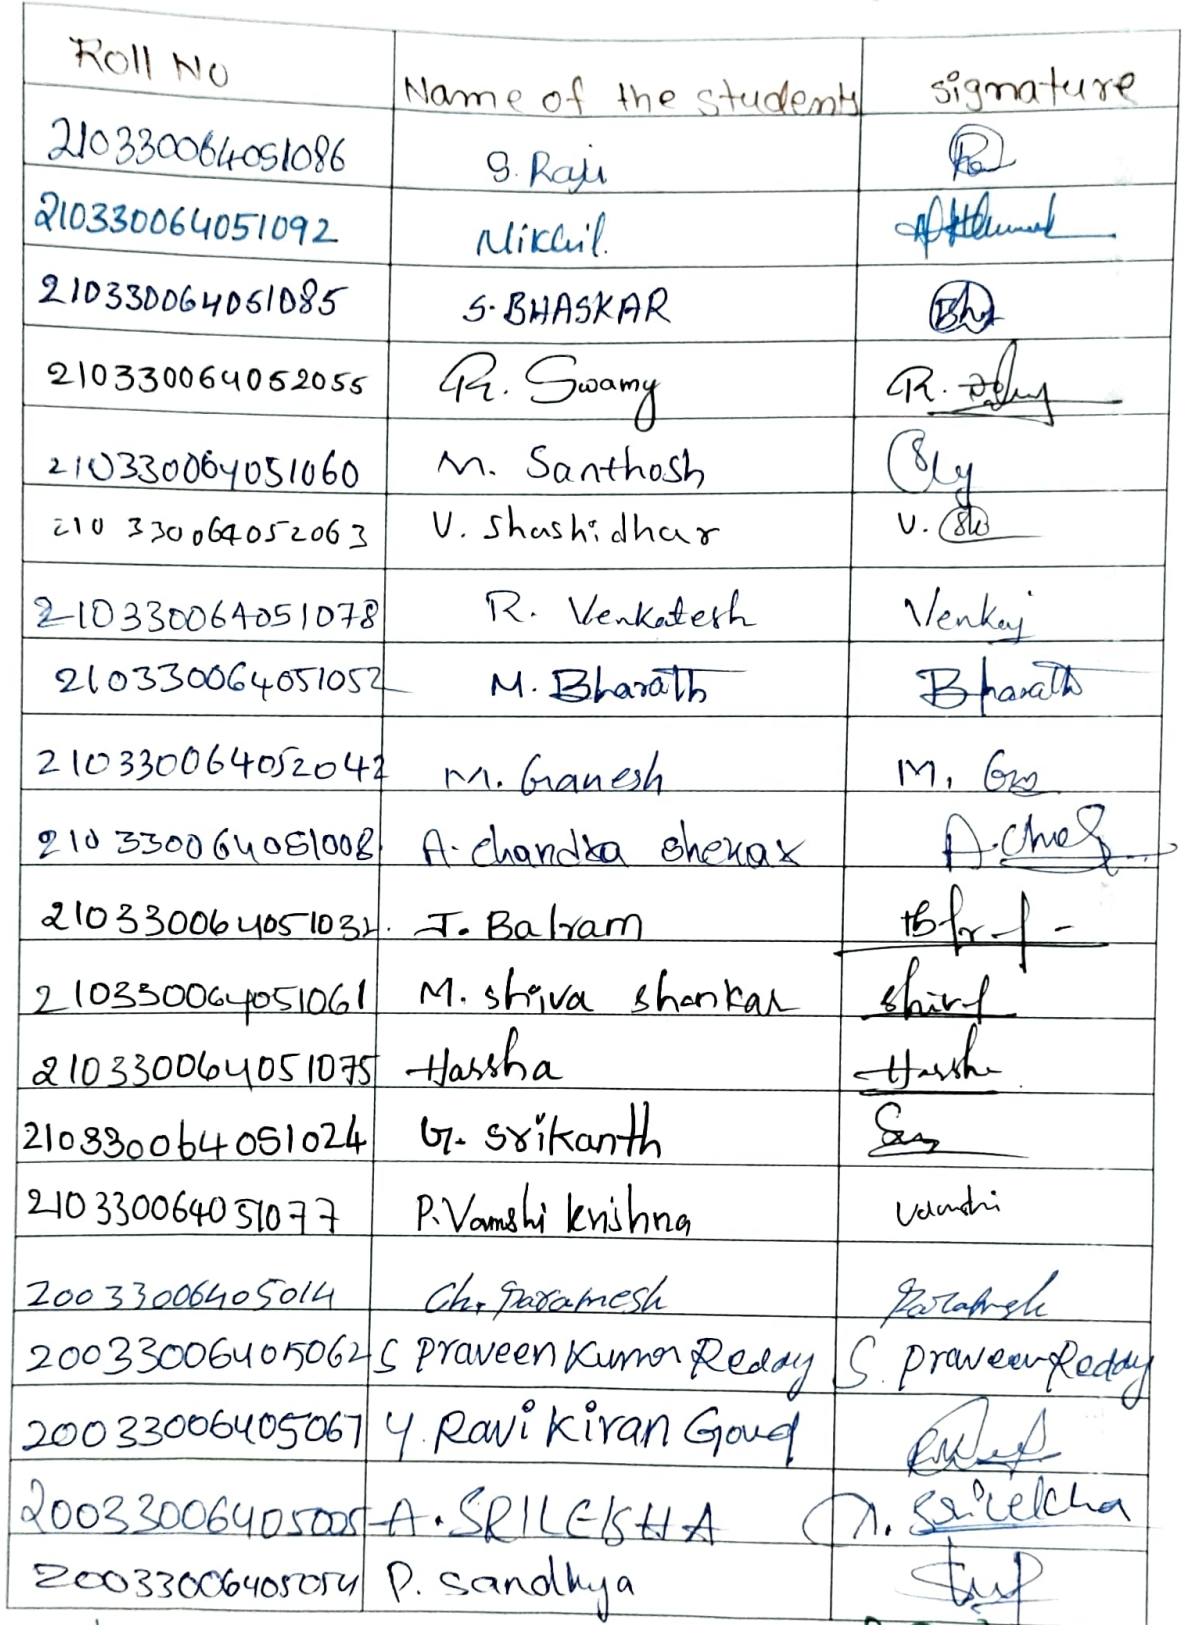 Roll No Name of the students signature
210330064051086 S. Raji
210330064051092 Nikhil.
210330064051085 S. BHASKAR Bha
210330064052055 R. Swamy R.
210330064051060 M. Santhosh
210330064052063 V. Shashidhar V.
210330064051078 R. Venkatesh Venkaj
210330064051052 M. Bharath Bharath
210330064052042 M. Ganesh M.
210330064051008 A. chandra shekar A.
210330064051032. J. Balram
210330064051061 M. shiva shankar
210330064051075 Harsha Harsha
210330064051024 G. srikanth
210330064051077 P. Vamshi krishna Vamshi
20033006405014 Ch. Paramesh Paramesh
20033006405062 S Praveen Kumar Reddy S. praveen Reddy
20033006405067 Y. Ravi Kiran Goud
20033006405005 A. SRILEKHA A. Srilekha
20033006405054 P. Sandhya